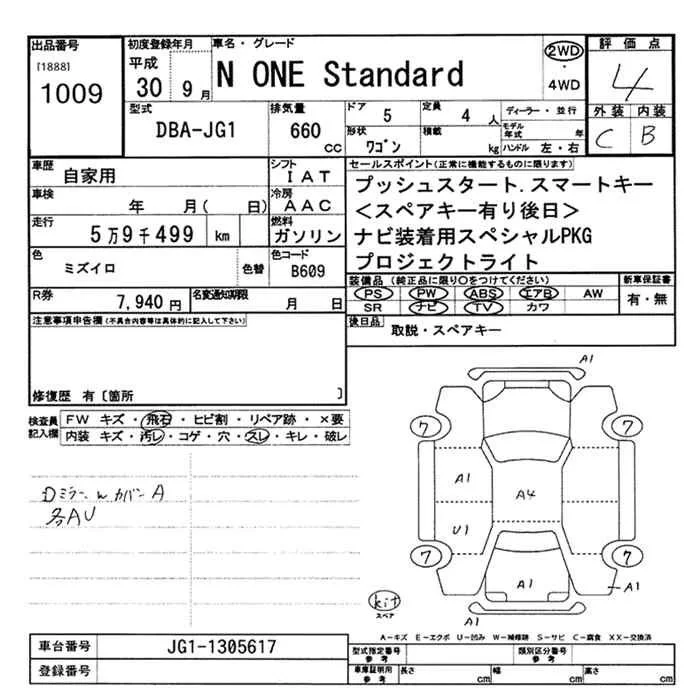 出品番号
[1888]
1009
初度登録年月
平成
30年9月
車名・グレード
N ONE Standard
2WD
・
4WD
評価点
4
外装 内装
C B
型式
DBA-JG1
排気量
660 cc
ドア
5
定員
4人
形状
ワゴン
積載
kg
ディーラー・並行
モデル年式 年
ハンドル 左・右
車歴
自家用
車検
年 月( 日)
走行
5万9千499 km
色
ミズイロ
色替
シフト
IAT
冷房
AAC
燃料
ガソリン
色コード
B609
R券
7,940円
名変通知期限
月 日
セールスポイント(正常に機能するものに限ります)
プッシュスタート.スマートキー
<スペアキー有り後日>
ナビ装着用スペシャルPKG
プロジェクトライト
装備品(純正品に限り〇をつけてください)
PS PW ABS エアB AW
SR ナビ TV カワ
新車保証書
有・無
後日品
取説・スペアキー
注意事項申告欄(不具合内容等は具体的に記入して下さい)
修復歴 有〔箇所 〕
検査員
記入欄
FW キズ・飛石・ヒビ割・リペア跡・×要
内装 キズ・汚レ・コゲ・穴・スレ・キレ・破レ
Dミラー w カバー A
各AU
A1
7 7
A1 A4
U1
7 7
A1 A1
kit
スペア
A1
A-キズ E-エクボ U-凹み W-補修跡 S-サビ C-腐食 XX-交換済
車台番号
JG1-1305617
登録番号
型式指定番号
参考
類別区分番号
参考
車庫証明用
参考
長さ cm
幅 cm
高さ cm